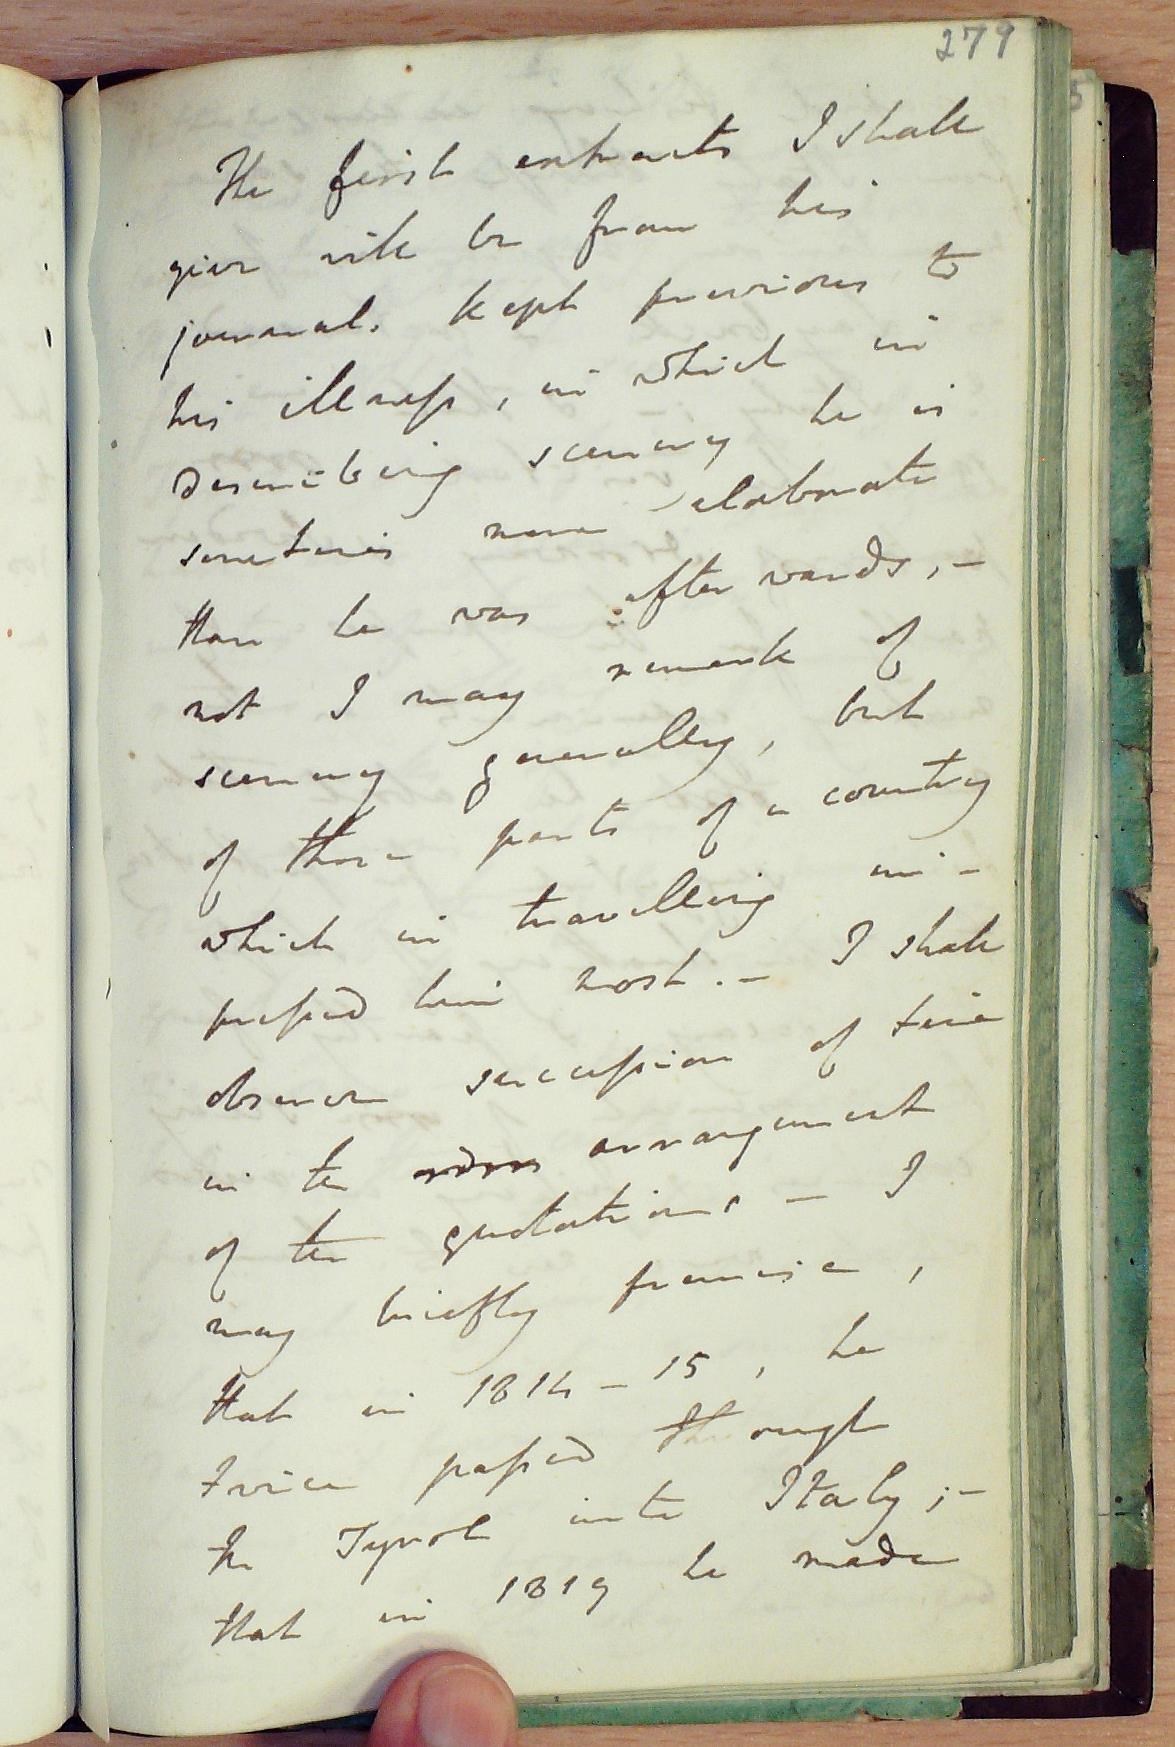 279
The first extracts I shall
give will be from his
journal. kept previous to
his illness, in which in
describing scenery he is
sometimes more elaborate
than he was afterwards, –
not I may remark of
scenery generally, but
of those parts of a country
which in travelling im-
pressed him most. – I shall
observe succession of time
in the arrangement
of the quotations – I
may briefly premise,
that in 1814 – 15, he
twice passed through
the Tyrol into Italy; –
that in 1819 he made